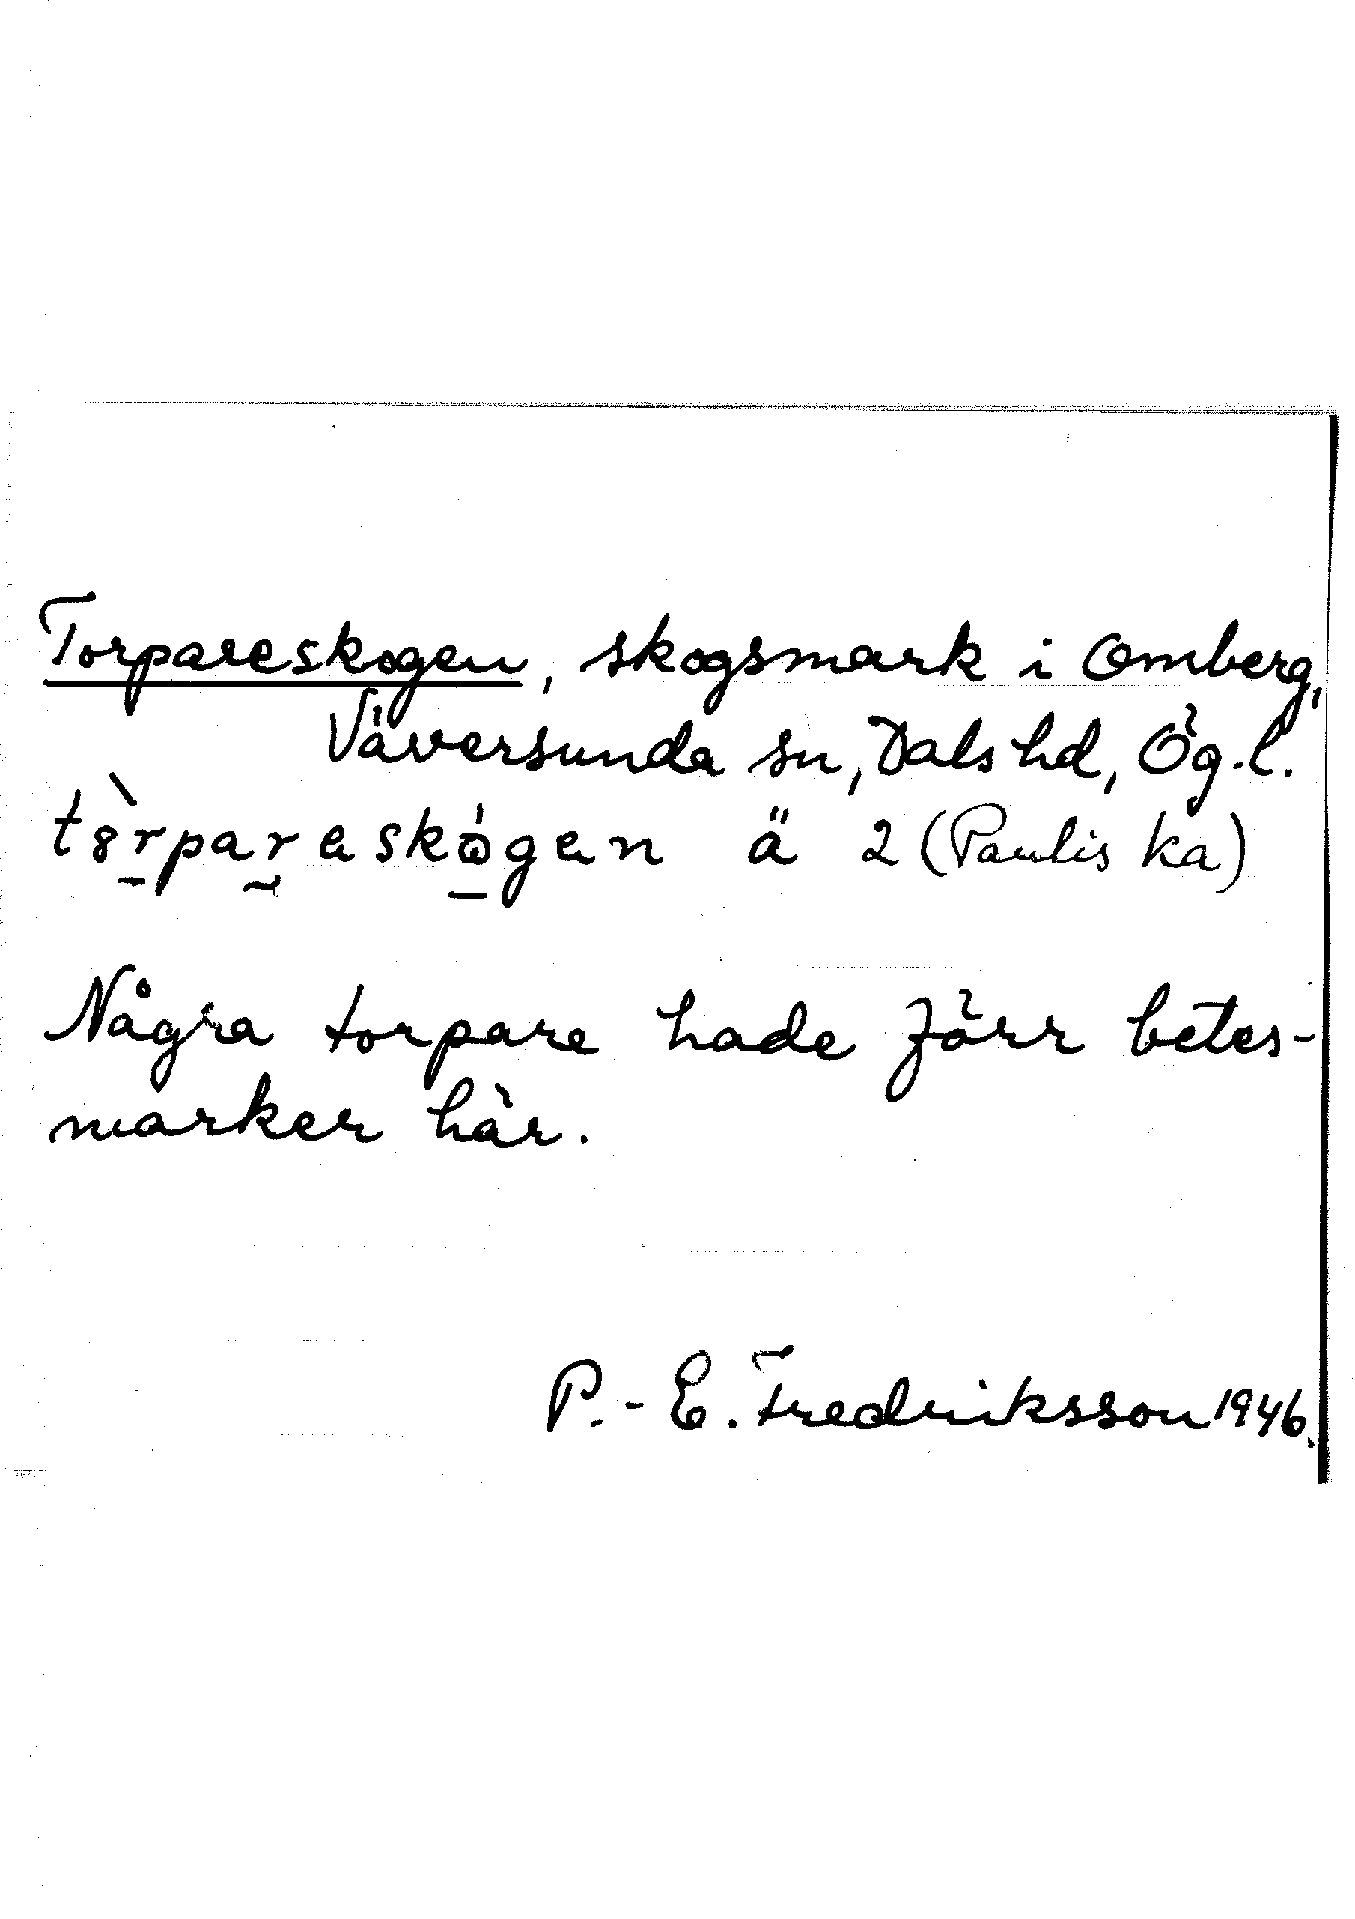 Torpareskogen, skogsmark i Omberg,
Väversunda sn, Dals hd, Ög.l.
tòrpareskógen ä 2 (Paulis ka)
Några torpare hade förr betes-
marker här.
P.-E. Fredriksson 1946.